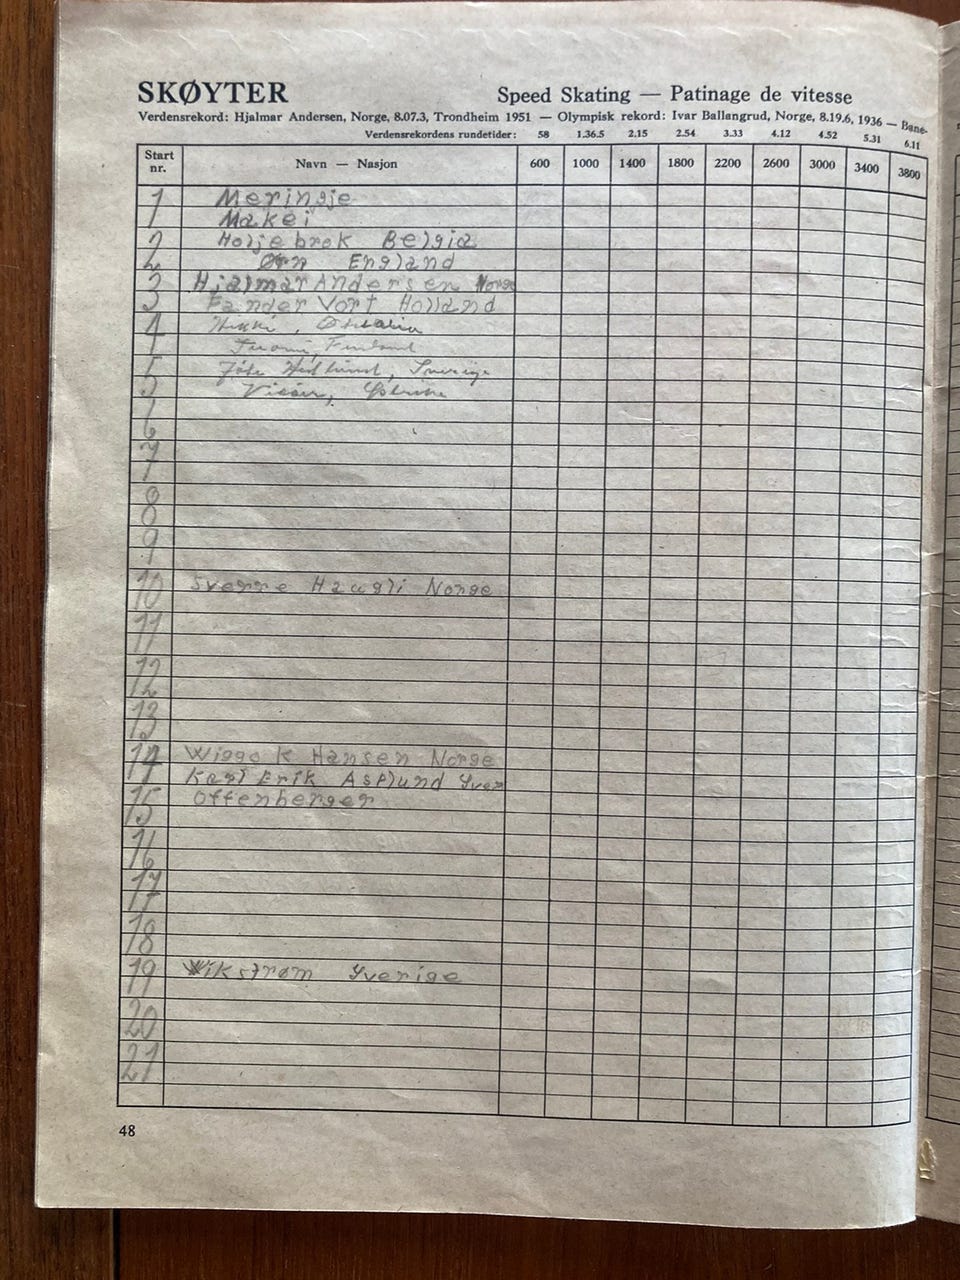 SKØYTER Speed Skating — Patinage de vitesse
Verdensrekord: Hjalmar Andersen, Norge, 8.07.3, Trondheim 1951 — Olympisk rekord: Ivar Ballangrud, Norge, 8.19.6, 1936 — Bane-
Verdensrekordens rundetider: 58 1.36.5 2.15 2.54 3.33 4.12 4.52 5.31 6.11
Start nr. Navn — Nasjon 600 1000 1400 1800 2200 2600 3000 3400 3800
1 Meringje
1 Makei
2 Hoije brok Belgia
2 England
3 Hjalmar Andersen Norge
3 Fander Vort Holland
4
4 Finland
5 Hedlund, Sverige
5
6
6
7
7
8
8
9
9
10 Sverre Haugli Norge
10
11
11
12
12
13
13
14 Wiggo K Hansen Norge
14 Karl Erik Asplund Sver
15 Offenberger
15
16
16
17
17
18
18
19 Wikstrøm Sverige
19
20
20
21
21
48